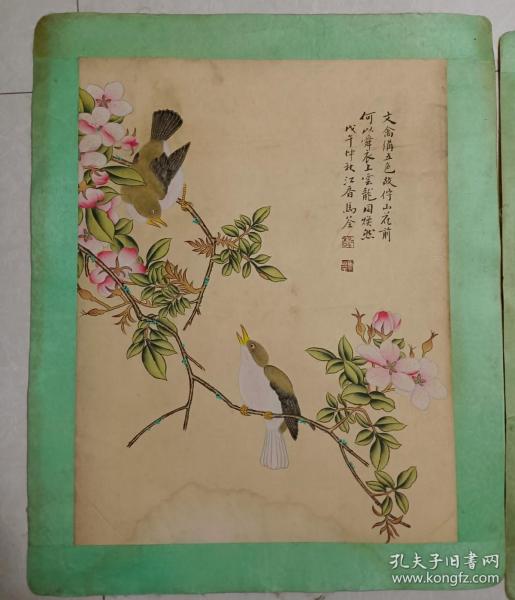 文禽備五色故待山花前
何以舜衣上雲龍同燦然
戊午仲秋江香馬荃
孔夫子旧书网
www.kongfz.com